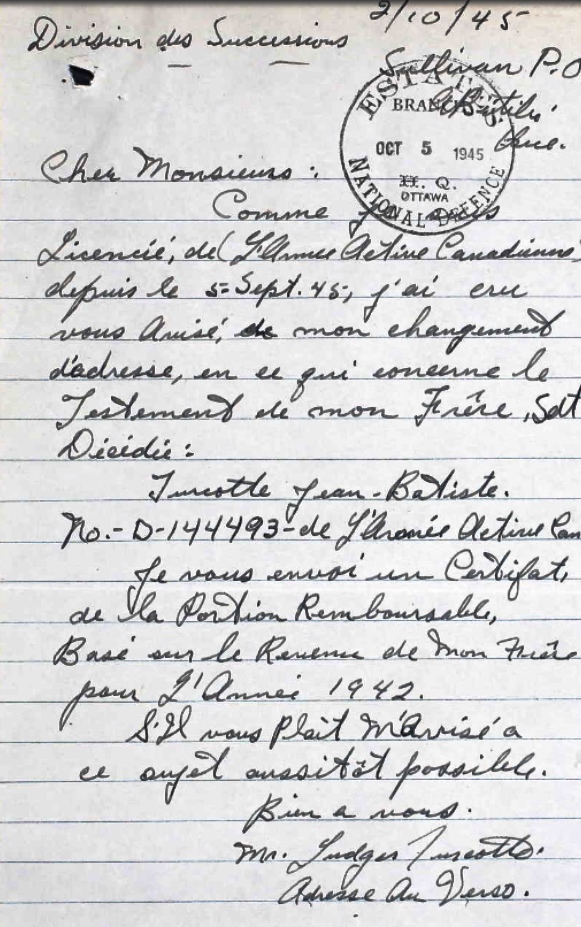 2/10/45
Division des Successions
Sullivan P.O
Abitibi
Que.
ESTATES
BRANCH
OCT 5 1945
H. Q.
OTTAWA
NATIONAL DEFENCE
Cher Monsieurs :
Comme je suis
Licencié, de (L'Armee Active Canadienne)
depuis le 5 = Sept. 45, j'ai cru
vous Avisé, de mon changement
d'adresse, en ce qui concerne le
Testement de mon Frêre, Sdt
Décédié :
Turcotte Jean-Batiste.
No.- D-144493 - de L'Armée Active Can
Je vous envoi un Certifat,
de la Portion Remboursable,
Basé sur le Revenue de Mon Frêre
pour L'Année 1942.
S'Il vous Plait M'Avisé a
ce sujet aussitôt possible.
Bien a vous.
Mr. Ludger Turcotte.
Adresse Au Verso.